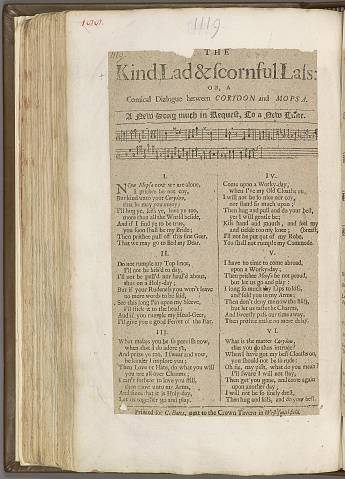 1119
THE
Kind Lad & scornful Lass:
OR, A
Comical Dialogue between CORYDON and MOPSA.
A New Song much in Request, To a New Tune.
I.
NOw Mopsa now we are alone,
I prithee be not coy,
But kind unto your Corydon,
that he may you enjoy;
I'll hug ye, kiss ye, love ye too,
more than all the World beside,
And if I find ye to be true,
you soon shall be my Bride;
Then prithee pull off this fine Gear,
That we may go to Bed my Dear.
II.
Do not rumple my Top knot,
I'll not be kiss'd to day,
I'll not be pull'd nor haul'd about,
thus on a Holy-day;
But if your Rudeness you won't leave
no more words to be said,
See this long Pin upon my Sleeve,
I'll stick it to the head;
And if you rumple my Head-Geer,
I'll give you a good Flurt of the Ear.
III.
What makes you be so peevish now,
when that I do adore ye,
And prize ye too, I swear and vow,
be kinder I implore you;
Then Love or Hate, do what you will
you are all over Charms;
I can't forbear to love you still,
then come unto my Arms,
And since that it is Holy-day,
Let us together go and play.
IV.
Come upon a Worky-day,
when I've my Old Cloaths on,
I will not be so nice nor coy,
nor stand so much upon;
Then hug and pull and do your best,
yet I will gentle be;
Kiss hand and mouth, and feel my
and tickle too my knee: (breast,
I'll not be put out of my Robe,
You shall not rumple my Commode.
V.
I have no time to come abroad,
upon a Worky-day;
Then prithee Mopsa be not proud,
but let us go and play:
I long so much my Lips to kiss,
and fold you in my Arms;
Then don't deny me now the bliss,
but let us taste the Charms,
And sweetly pass our time away,
Then prithee make no more delay.
VI.
What is the matter Corydon,
that you do thus intrude?
When I have got my best Cloaths on,
you should not be so rude:
Oh fie, nay pish, what do you mean?
I'll swear I will not stay,
Then get you gone, and come again
upon another day;
I will not be so finely drest,
Then hug and kiss, and do your best.
Printed for C. Bates, next to the Crown Tavern in West-smithfield.